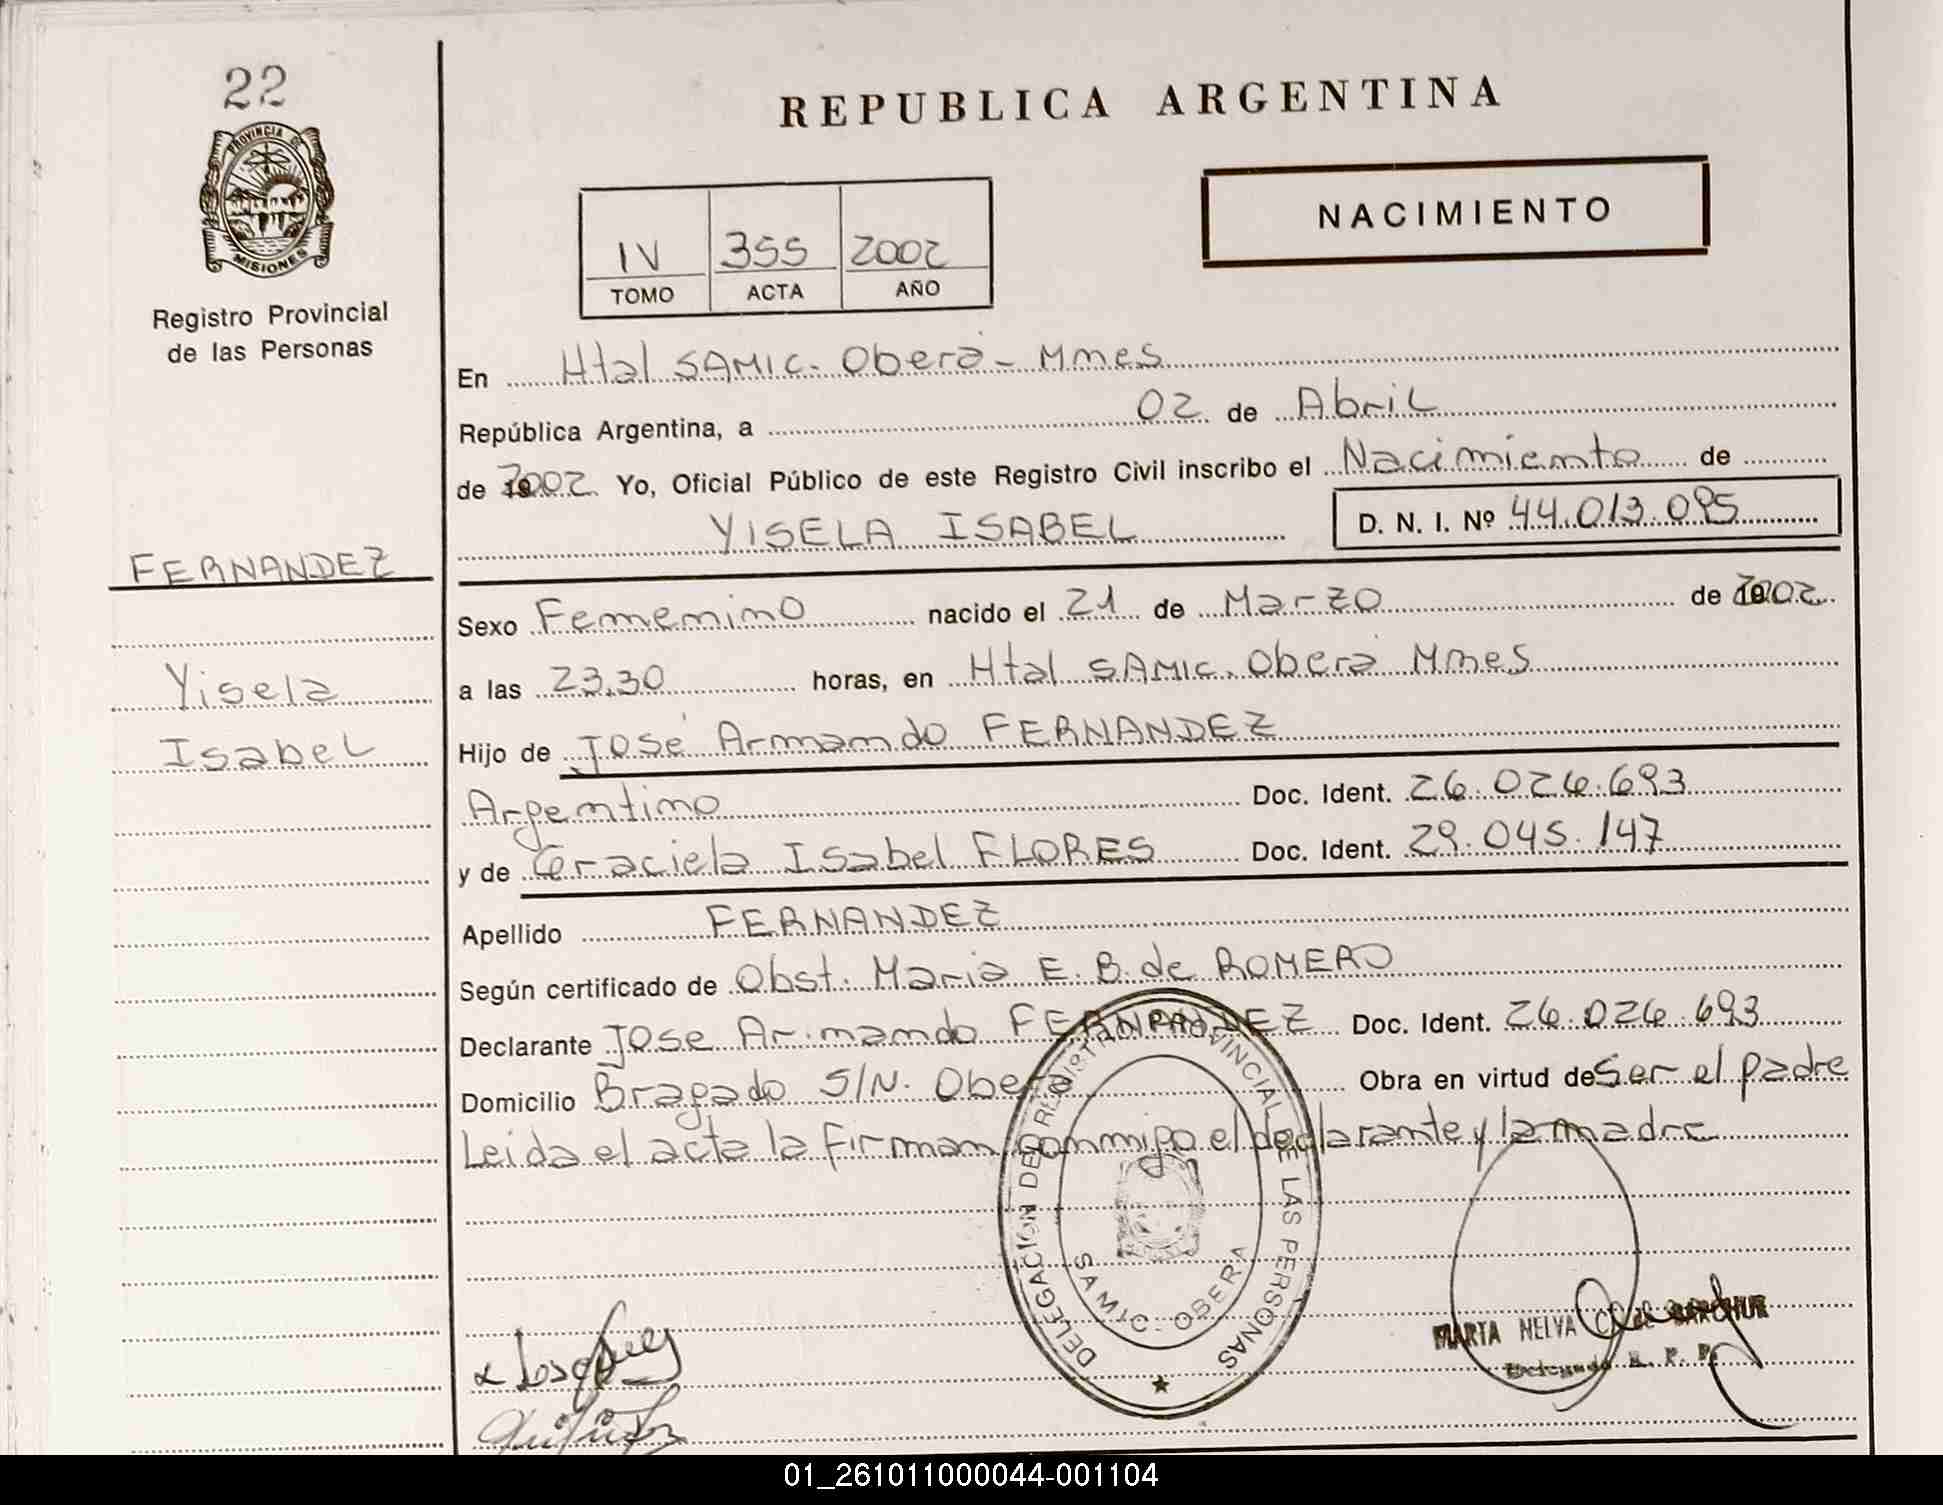 22
PROVINCIA DE
MISIONES
Registro Provincial
de las Personas
FERNANDEZ
Yisela
Isabel
REPUBLICA ARGENTINA
NACIMIENTO
IV 355 2002
TOMO ACTA AÑO
En Htal SAMIC. Oberá - Mnes
República Argentina, a 02 de Abril
de 2002 Yo, Oficial Público de este Registro Civil inscribo el Nacimiento de
YISELA ISABEL D. N. I. Nº 44.013.095
Sexo Femenino nacido el 21 de Marzo de 2002
a las 23.30 horas, en Htal SAMIC. Oberá Mnes
Hijo de José Armando FERNANDEZ
Argentino Doc. Ident. 26.026.693
y de Graciela Isabel FLORES Doc. Ident. 29.045.147
Apellido FERNANDEZ
Según certificado de Obst. Maria E. B. de ROMERO
Declarante Jose Armando FERNANDEZ Doc. Ident. 26.026.693
Domicilio Bragado S/N. Oberá Obra en virtud de Ser el padre
Leida el acta la firman conmigo el declarante y la madre
DELEGACION DEL REGISTRO PROVINCIAL DE LAS PERSONAS
SAMIC - OBERA
MARTA NELVA
R. P. P.
01_261011000044-001104